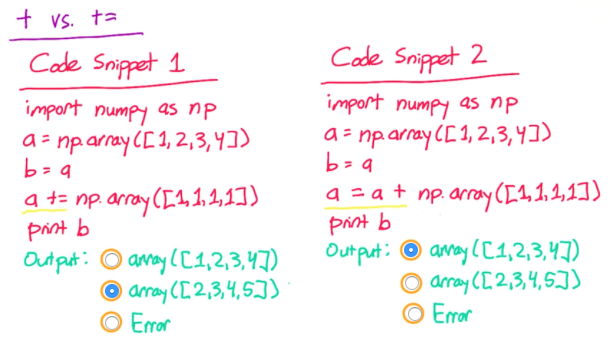 + vs. +=
Code Snippet 1
import numpy as np
a = np.array([1,2,3,4])
b = a
a += np.array([1,1,1,1])
print b
Output: array([1,2,3,4])
array([2,3,4,5])
Error
Code Snippet 2
import numpy as np
a = np.array([1,2,3,4])
b = a
a = a + np.array([1,1,1,1])
print b
Output: array([1,2,3,4])
array([2,3,4,5])
Error